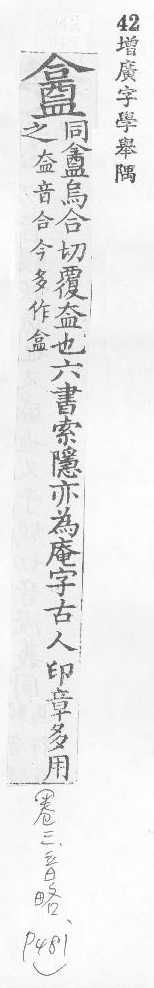 42增廣字學舉隅
盦
同盫烏合切覆盇也六書索隱亦為庵字古人印章多用
之 盇音合今多作盒
(卷三、音略、P481)